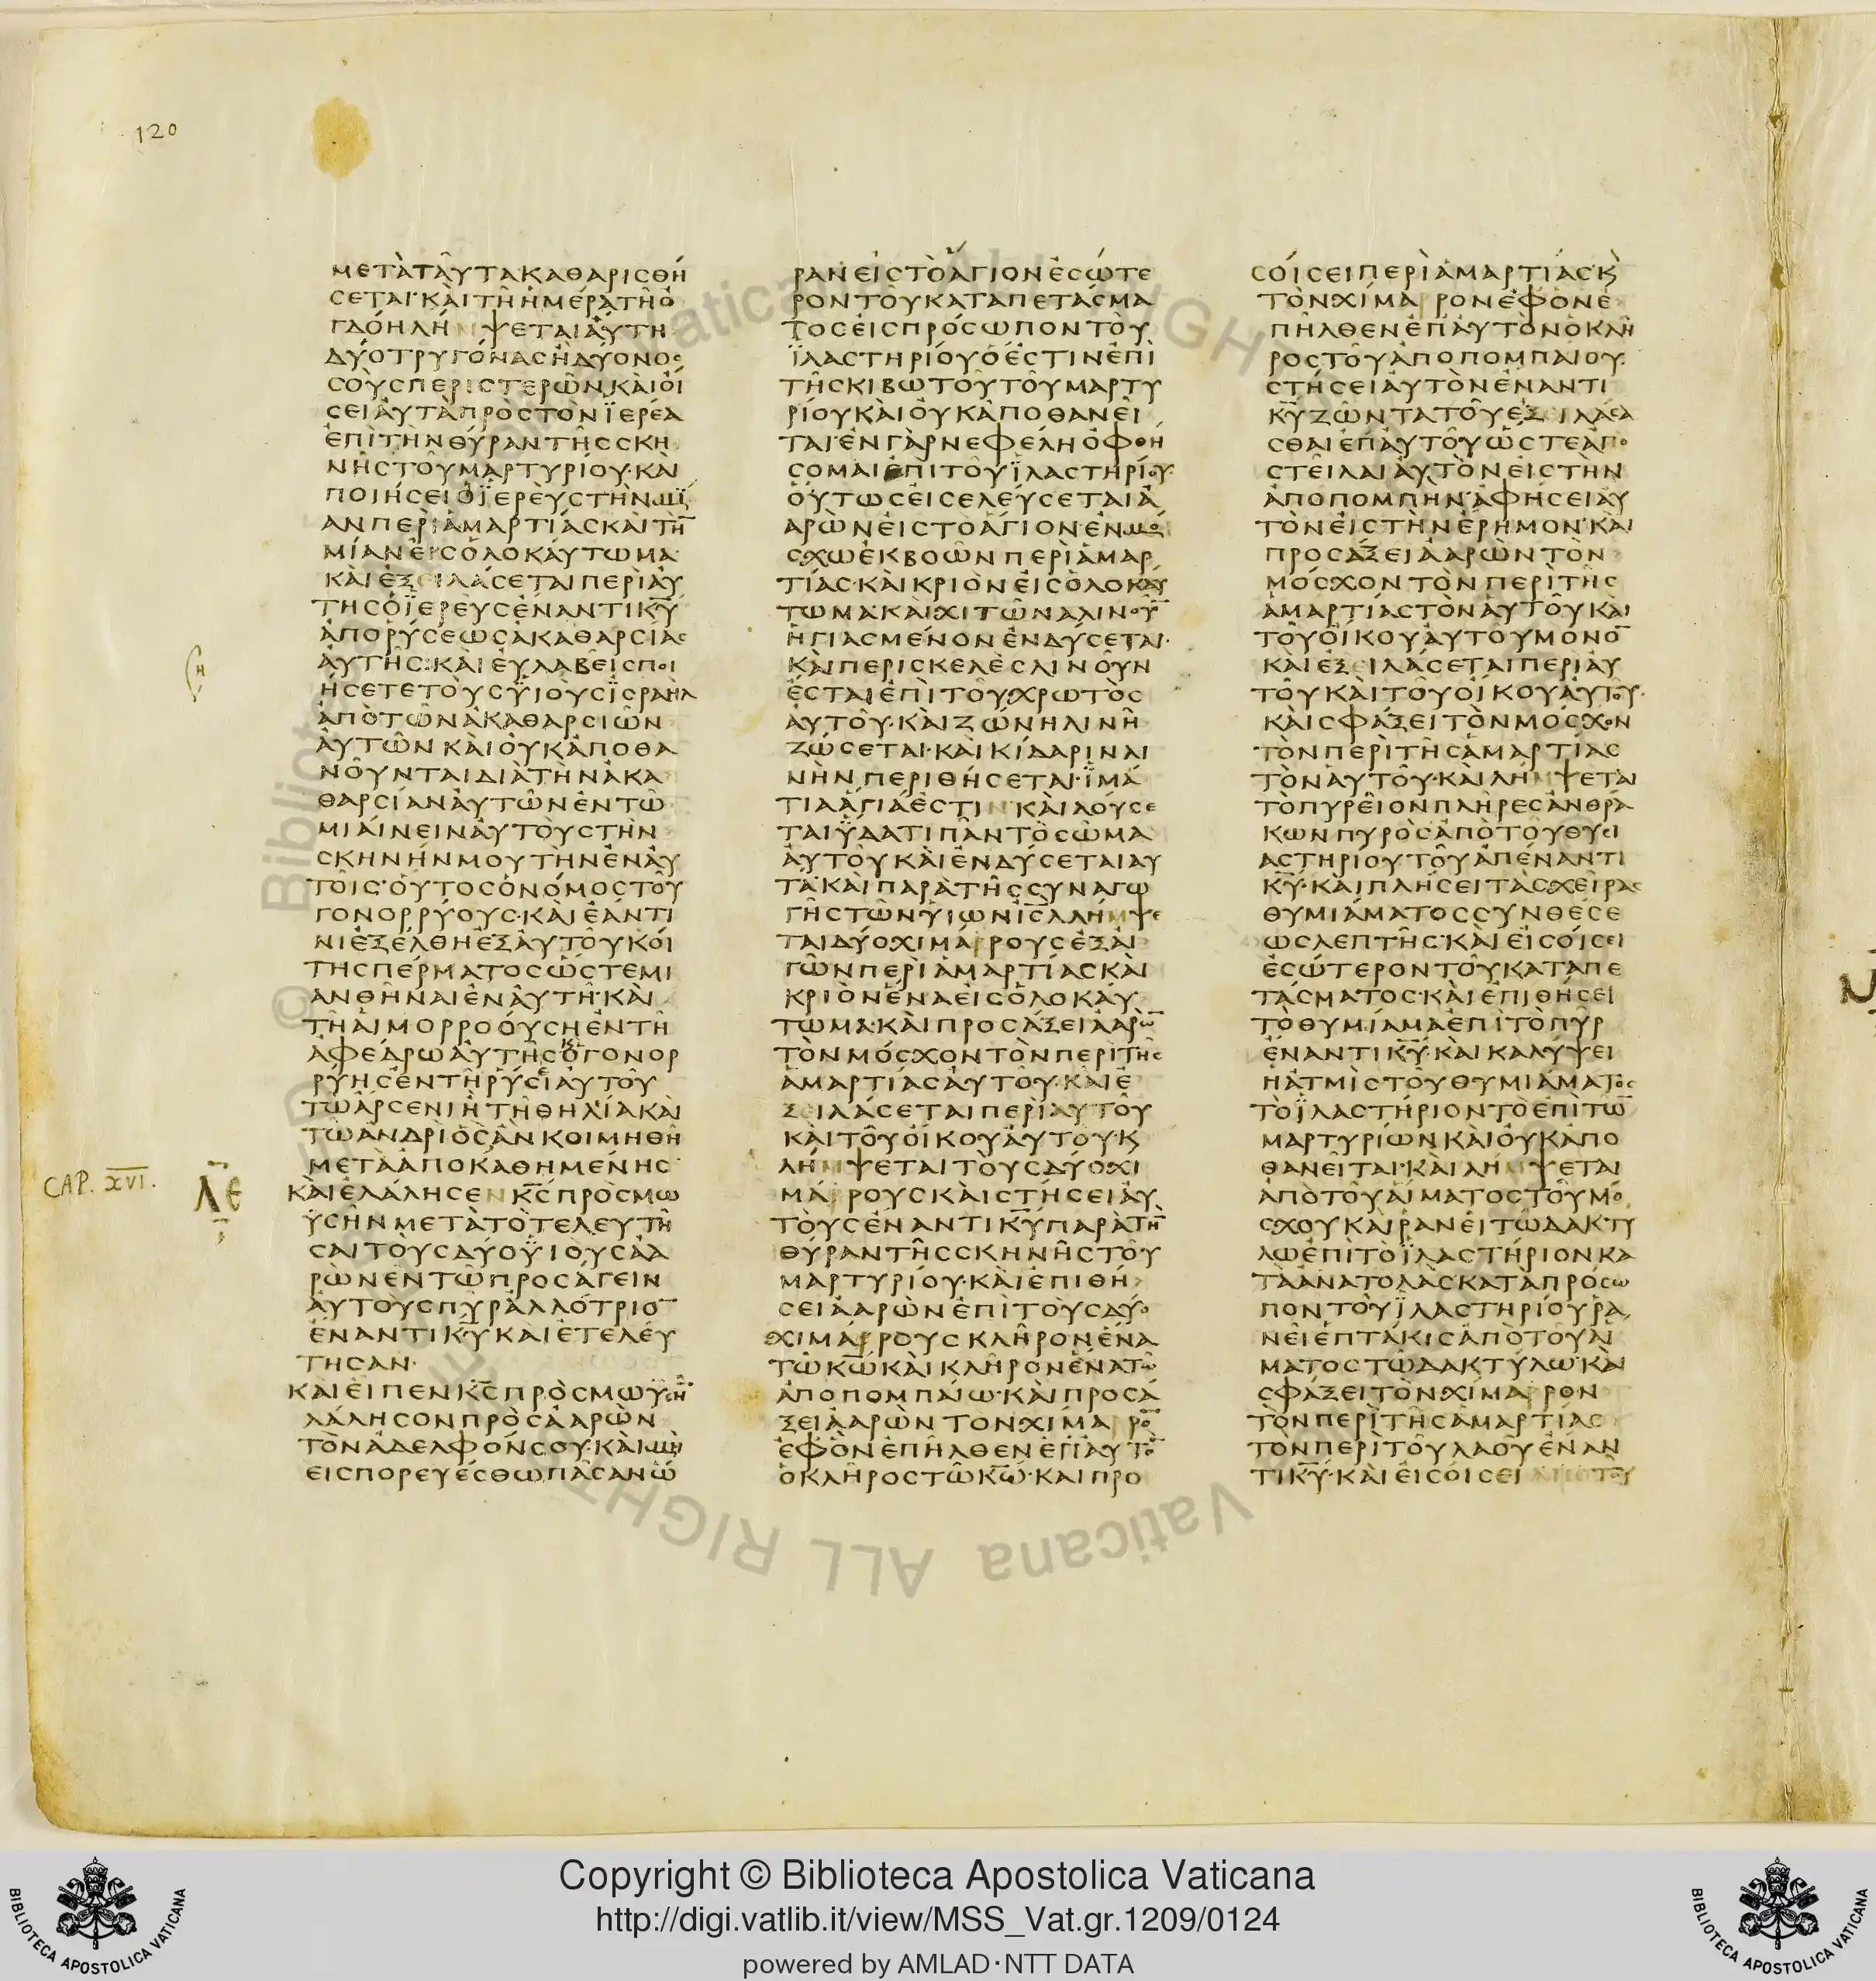 120
ΜΕΤΑΤΑΥΤΑΚΑΘΑΡΙΣΘΗ
ΣΕΤΑΙ·ΚΑΙΤΗΗΜΕΡΑΤΗΟ
ΓΔΟΗΛΗΜΨΕΤΑΙΑΥΤΗ
ΔΥΟΤΡΥΓΟΝΑΣΗΔΥΟΝΟΣ
ΣΟΥΣΠΕΡΙΣΤΕΡΩΝ·ΚΑΙΟΙ
ΣΕΙΑΥΤΑΠΡΟΣΤΟΝΪΕΡΕΑ
ΕΠΙΤΗΝΘΥΡΑΝΤΗΣΣΚΗ
ΝΗΣΤΟΥΜΑΡΤΥΡΙΟΥ·ΚΑΙ
ΠΟΙΗΣΕΙΟΪΕΡΕΥΣΤΗΝΜΙ
ΑΝΠΕΡΙΑΜΑΡΤΙΑΣΚΑΙΤΗ̅
ΜΙΑΝΕΙΣΟΛΟΚΑΥΤΩΜΑ
ΚΑΙΕΞΕΙΛΑΣΕΤΑΙΠΕΡΙΑΥ
ΤΗΣΟΪΕΡΕΥΣΕΝΑΝΤΙΚ̅Υ̅
ΑΠΟΡΥΣΕΩΣΑΚΑΘΑΡΣΙΑΣ
ΑΥΤΗΣ·ΚΑΙΕΥΛΑΒΕΙΣΠΟΙ
ΗΣΕΤΕΤΟΥΣΫΙΟΥΣΪΣΡΑΗΛ
ΑΠΟΤΩΝΑΚΑΘΑΡΣΙΩΝ
ΑΥΤΩΝΚΑΙΟΥΚΑΠΟΘΑ
ΝΟΥΝΤΑΙΔΙΑΤΗΝΑΚΑ
ΘΑΡΣΙΑΝΑΥΤΩΝΕΝΤΩ
ΜΙΑΙΝΕΙΝΑΥΤΟΥΣΤΗΝ
ΣΚΗΝΗΝΜΟΥΤΗΝΕΝΑΥ
ΤΟΙΣ·ΟΥΤΟΣΟΝΟΜΟΣΤΟΥ
ΓΟΝΟΡΡΥΟΥΣ·ΚΑΙΕΑΝΤΙ
ΝΙΕΞΕΛΘΗΕΞΑΥΤΟΥΚΟΙ
ΤΗΣΠΕΡΜΑΤΟΣΩΣΤΕΜΙ
ΑΝΘΗΝΑΙΕΝΑΥΤΗ·ΚΑΙ
ΤΗΑΙΜΟΡΡΟΟΥΣΗΕΝΤΗ
ΑΦΕΔΡΩΑΥΤΗΣΟΓΟΝΟΡ
ΡΥΗΣΕΝΤΗΡΥΣΙΑΥΤΟΥ
ΤΩΑΡΣΕΝΙΗΤΗΘΗΛΙΑΚΑΙ
ΤΩΑΝΔΡΙΟΣΑΝΚΟΙΜΗΘΗ
ΜΕΤΑΑΠΟΚΑΘΗΜΕΝΗΣ
CAP. XVI.
ΛΕ
ΚΑΙΕΛΑΛΗΣΕΝΚ̅Σ̅ΠΡΟΣΜΩ
ΫΣΗΝΜΕΤΑΤΟΤΕΛΕΥΤΗ
ΣΑΙΤΟΥΣΔΥΟΫΙΟΥΣΑΑ
ΡΩΝΕΝΤΩΠΡΟΣΑΓΕΙΝ
ΑΥΤΟΥΣΠΥΡΑΛΛΟΤΡΙΟ̅
ΕΝΑΝΤΙΚ̅Υ̅ΚΑΙΕΤΕΛΕΥ
ΤΗΣΑΝ·
ΚΑΙΕΙΠΕΝΚ̅Σ̅ΠΡΟΣΜΩΫΣΗ̅
ΛΑΛΗΣΟΝΠΡΟΣΑΑΡΩΝ
ΤΟΝΑΔΕΛΦΟΝΣΟΥ·ΚΑΙΜΗ
ΕΙΣΠΟΡΕΥΕΣΘΩΠΑΣΑΝΩ
ΡΑΝΕΙΣΤΟΑΓΙΟΝΕΣΩΤΕ
ΡΟΝΤΟΥΚΑΤΑΠΕΤΑΣΜΑ
ΤΟΣΕΙΣΠΡΟΣΩΠΟΝΤΟΥ
ΪΛΑΣΤΗΡΙΟΥΟΕΣΤΙΝΕΠΙ
ΤΗΣΚΙΒΩΤΟΥΤΟΥΜΑΡΤΥ
ΡΙΟΥΚΑΙΟΥΚΑΠΟΘΑΝΕΙ
ΤΑΙ·ΕΝΓΑΡΝΕΦΕΛΗΟΦΘΗ
ΣΟΜΑΙΕΠΙΤΟΥΪΛΑΣΤΗΡΙΟΥ·
ΟΥΤΩΣΕΙΣΕΛΕΥΣΕΤΑΙΑ
ΑΡΩΝΕΙΣΤΟΑΓΙΟΝ·ΕΝΜΟ
ΣΧΩΕΚΒΟΩΝΠΕΡΙΑΜΑΡ
ΤΙΑΣ·ΚΑΙΚΡΙΟΝΕΙΣΟΛΟΚΑΥ
ΤΩΜΑ·ΚΑΙΧΙΤΩΝΑΛΙΝΟΥ̅
ΗΓΙΑΣΜΕΝΟΝΕΝΔΥΣΕΤΑΙ·
ΚΑΙΠΕΡΙΣΚΕΛΕΣΛΙΝΟΥΝ
ΕΣΤΑΙΕΠΙΤΟΥΧΡΩΤΟΣ
ΑΥΤΟΥ·ΚΑΙΖΩΝΗΛΙΝΗ
ΖΩΣΕΤΑΙ·ΚΑΙΚΙΔΑΡΙΝΛΙ
ΝΗΝΠΕΡΙΘΗΣΕΤΑΙ·ΪΜΑ
ΤΙΑΑΓΙΑΕΣΤΙΝ·ΚΑΙΛΟΥΣΕ
ΤΑΙΫΔΑΤΙΠΑΝΤΟΣΩΜΑ
ΑΥΤΟΥΚΑΙΕΝΔΥΣΕΤΑΙΑΥ
ΤΑ·ΚΑΙΠΑΡΑΤΗΣΣΥΝΑΓΩ
ΓΗΣΤΩΝΫΙΩΝΙ̅Σ̅Λ̅ΛΗΜΨΕ
ΤΑΙΔΥΟΧΙΜΑΡΡΟΥΣΕΞΑΙ
ΓΩΝΠΕΡΙΑΜΑΡΤΙΑΣΚΑΙ
ΚΡΙΟΝΕΝΑΕΙΣΟΛΟΚΑΥ
ΤΩΜΑ·ΚΑΙΠΡΟΣΑΞΕΙΑΑΡΩ̅
ΤΟΝΜΟΣΧΟΝΤΟΝΠΕΡΙΤΗΣ
ΑΜΑΡΤΙΑΣΑΥΤΟΥ·ΚΑΙΕ
ΞΕΙΛΑΣΕΤΑΙΠΕΡΙΑΥΤΟΥ
ΚΑΙΤΟΥΟΙΚΟΥΑΥΤΟΥ·Κ
ΛΗΜΨΕΤΑΙΤΟΥΣΔΥΟΧΙ
ΜΑΡΡΟΥΣΚΑΙΣΤΗΣΕΙΑΥ
ΤΟΥΣΕΝΑΝΤΙΚ̅Υ̅ΠΑΡΑΤΗ̅
ΘΥΡΑΝΤΗΣΣΚΗΝΗΣΤΟΥ
ΜΑΡΤΥΡΙΟΥ·ΚΑΙΕΠΙΘΗ
ΣΕΙΑΑΡΩΝΕΠΙΤΟΥΣΔΥΟ
ΧΙΜΑΡΡΟΥΣΚΛΗΡΟΝΕΝΑ
ΤΩΚ̅Ω̅ΚΑΙΚΛΗΡΟΝΕΝΑΤΩ
ΑΠΟΠΟΜΠΑΙΩ·ΚΑΙΠΡΟΣΑ
ΞΕΙΑΑΡΩΝΤΟΝΧΙΜΑΡΡΟ̅
ΕΦΟΝΕΠΗΛΘΕΝΕΠΑΥΤΟ̅
ΟΚΛΗΡΟΣΤΩΚ̅Ω̅·ΚΑΙΠΡΟ
ΣΟΙΣΕΙΠΕΡΙΑΜΑΡΤΙΑΣ·Κ
ΤΟΝΧΙΜΑΡΡΟΝΕΦΟΝΕ
ΠΗΛΘΕΝΕΠΑΥΤΟΝΟΚΛΗ
ΡΟΣΤΟΥΑΠΟΠΟΜΠΑΙΟΥ
ΣΤΗΣΕΙΑΥΤΟΝΕΝΑΝΤΙ
Κ̅Υ̅ΖΩΝΤΑΤΟΥΕΞΕΙΛΑΣΑ
ΣΘΑΙΕΠΑΥΤΟΥΩΣΤΕΑΠΟ
ΣΤΕΙΛΑΙΑΥΤΟΝΕΙΣΤΗΝ
ΑΠΟΠΟΜΠΗΝ·ΑΦΗΣΕΙΑΥ
ΤΟΝΕΙΣΤΗΝΕΡΗΜΟΝ·ΚΑΙ
ΠΡΟΣΑΞΕΙΑΑΡΩΝΤΟΝ
ΜΟΣΧΟΝΤΟΝΠΕΡΙΤΗΣ
ΑΜΑΡΤΙΑΣΤΟΝΑΥΤΟΥΚΑΙ
ΤΟΥΟΙΚΟΥΑΥΤΟΥΜΟΝΟ̅
ΚΑΙΕΞΕΙΛΑΣΕΤΑΙΠΕΡΙΑΥ
ΤΟΥΚΑΙΤΟΥΟΙΚΟΥΑΥΤΟΥ·
ΚΑΙΣΦΑΞΕΙΤΟΝΜΟΣΧΟΝ
ΤΟΝΠΕΡΙΤΗΣΑΜΑΡΤΙΑΣ
ΤΟΝΑΥΤΟΥ·ΚΑΙΛΗΜΨΕΤΑΙ
ΤΟΠΥΡΕΙΟΝΠΛΗΡΕΣΑΝΘΡΑ
ΚΩΝΠΥΡΟΣΑΠΟΤΟΥΘΥΣΙ
ΑΣΤΗΡΙΟΥΤΟΥΑΠΕΝΑΝΤΙ
Κ̅Υ̅·ΚΑΙΠΛΗΣΕΙΤΑΣΧΕΙΡΑΣ
ΘΥΜΙΑΜΑΤΟΣΣΥΝΘΕΣΕ
ΩΣΛΕΠΤΗΣ·ΚΑΙΕΙΣΟΙΣΕΙ
ΕΣΩΤΕΡΟΝΤΟΥΚΑΤΑΠΕ
ΤΑΣΜΑΤΟΣ·ΚΑΙΕΠΙΘΗΣΕΙ
ΤΟΘΥΜΙΑΜΑΕΠΙΤΟΠΥΡ
ΕΝΑΝΤΙΚ̅Υ̅·ΚΑΙΚΑΛΥΨΕΙ
ΗΑΤΜΙΣΤΟΥΘΥΜΙΑΜΑΤΟΣ
ΤΟΪΛΑΣΤΗΡΙΟΝΤΟΕΠΙΤΩ̅
ΜΑΡΤΥΡΙΩΝΚΑΙΟΥΚΑΠΟ
ΘΑΝΕΙΤΑΙ·ΚΑΙΛΗΜΨΕΤΑΙ
ΑΠΟΤΟΥΑΙΜΑΤΟΣΤΟΥΜΟ
ΣΧΟΥΚΑΙΡΑΝΕΙΤΩΔΑΚΤΥ
ΛΩΕΠΙΤΟΪΛΑΣΤΗΡΙΟΝΚΑ
ΤΑΑΝΑΤΟΛΑΣΚΑΤΑΠΡΟΣΩ
ΠΟΝΤΟΥΪΛΑΣΤΗΡΙΟΥΡΑ
ΝΕΙΕΠΤΑΚΙΣΑΠΟΤΟΥΑΙ
ΜΑΤΟΣΤΩΔΑΚΤΥΛΩ·ΚΑΙ
ΣΦΑΞΕΙΤΟΝΧΙΜΑΡΡΟΝ
ΤΟΝΠΕΡΙΤΗΣΑΜΑΡΤΙΑΣ
ΤΟΝΠΕΡΙΤΟΥΛΑΟΥΕΝΑΝ
ΤΙΚ̅Υ̅·ΚΑΙΕΙΣΟΙΣΕΙ
Copyright © Biblioteca Apostolica Vaticana
http://digi.vatlib.it/view/MSS_Vat.gr.1209/0124
powered by AMLAD·NTT DATA
BIBLIOTECA APOSTOLICA VATICANA
BIBLIOTECA APOSTOLICA VATICANA